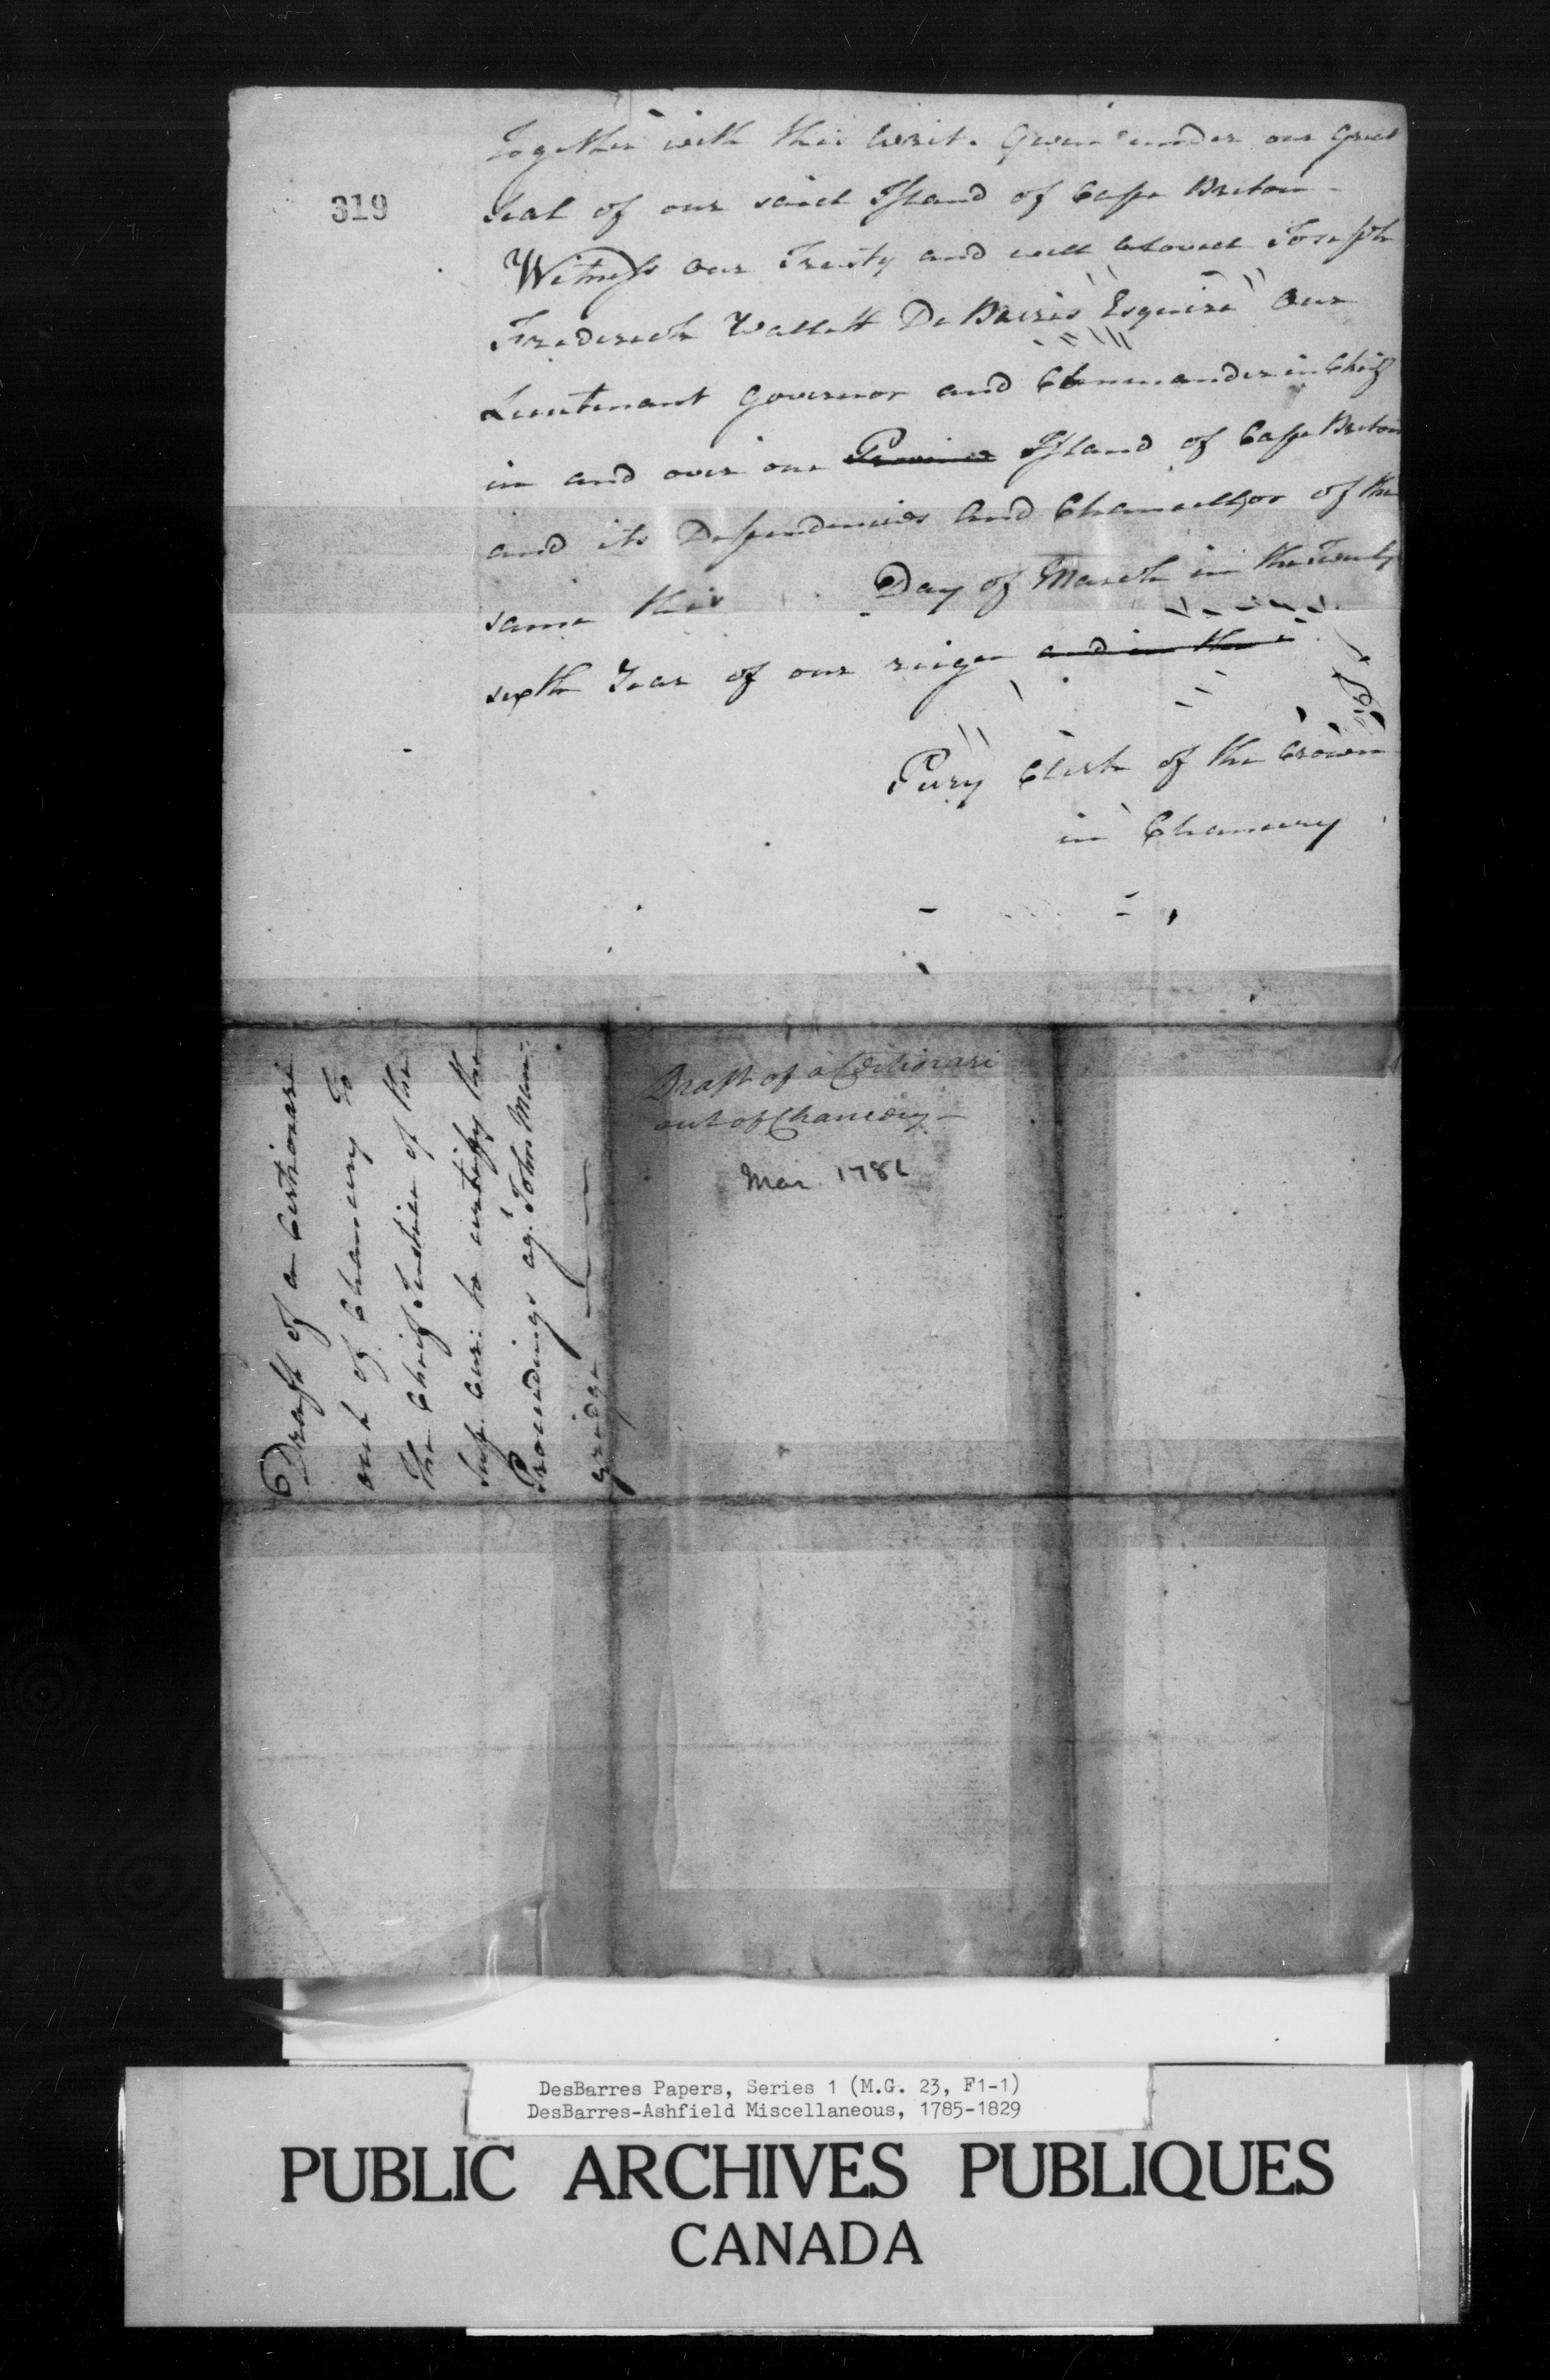 319
Together with this Writ. Given under our Great
Seal of our said Island of Cape Breton
Witness our Trusty and well beloved Joseph
Frederick Wallett DeBarres Esquire Our
Lieutenant Governor and Commander in Chief
in and over our Province Island of Cape Breton
and its Dependencies and Chancellor of the
same this Day of March in the Twenty
sixth Year of our reign and in the
Pery Clerk of the Crown
in Chancery
Draft of a Certiorari
out of Chancery to
the Chief Justice of the
Sup. Cur: to certify the
Proceedings agt. John Man=
gridge
Draft of a Certiorari
out of Chancery—
Mar. 1786
DesBarres Papers, Series 1 (M.G. 23, F1-1)
DesBarres-Ashfield Miscellaneous, 1785-1829
PUBLIC ARCHIVES PUBLIQUES
CANADA